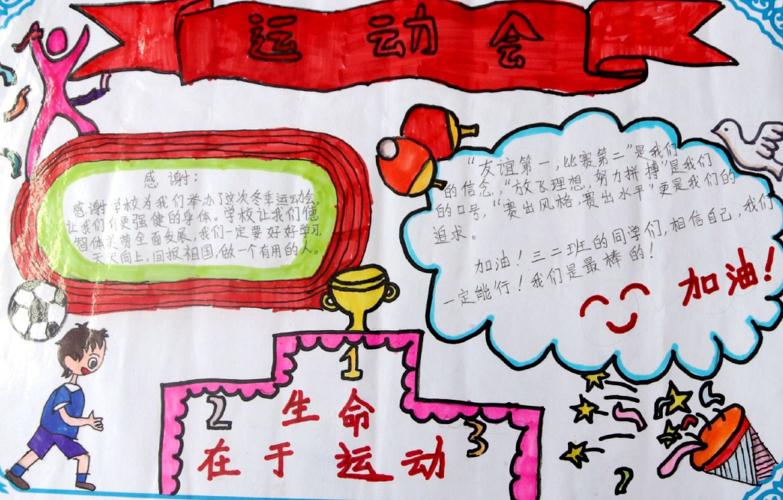 运动会
感谢:
感谢学校为我们举办了这次冬季运动会,
让我们更强健的身体。学校让我们德
智体美劳全面发展,我们一定要好好学习
天天向上,回报祖国,做一个有用的人。
"友谊第一,比赛第二"是我们
的信念,"放飞理想,努力拼搏"是我们
的口号,"赛出风格,赛出水平"更是我们的
追求。
加油!三二班的同学们,相信自己,我们
一定能行!我们是最棒的!
加油!
1
2
3
生命
在于运动